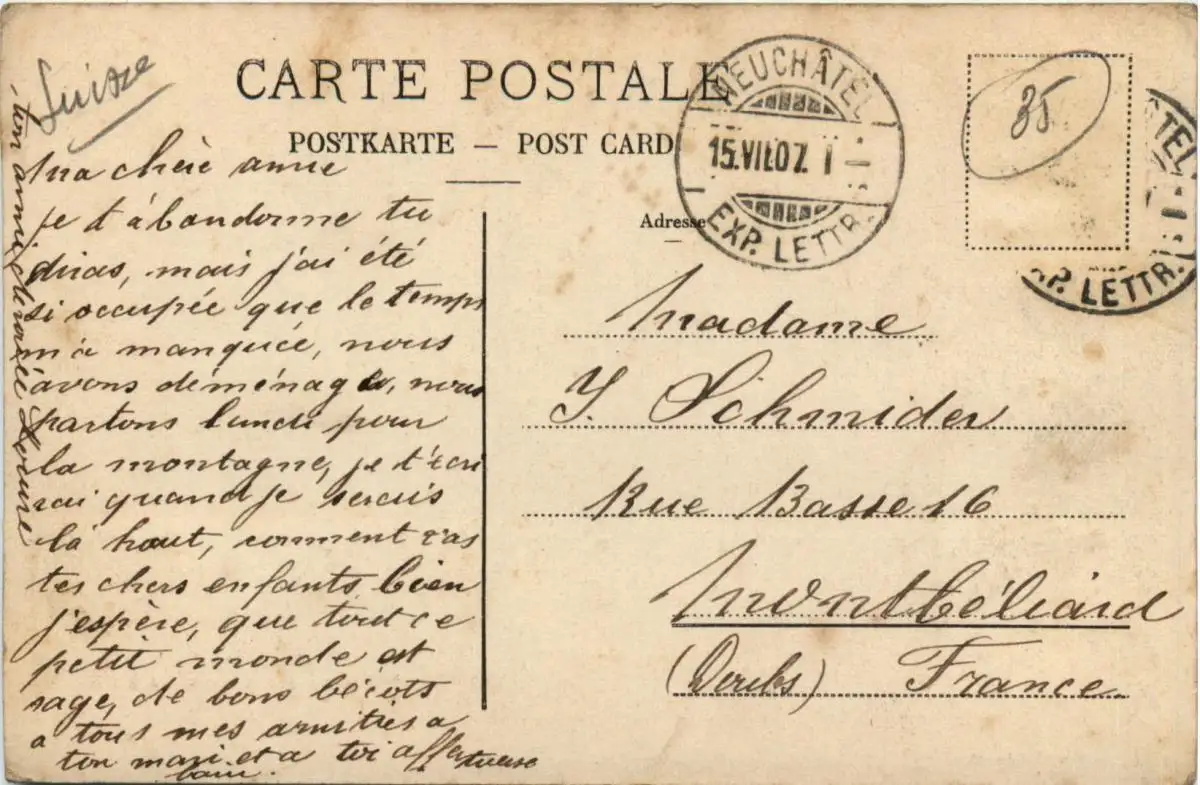 Suisse
CARTE POSTALE
POSTKARTE — POST CARD
NEUCHÂTEL
15.VII.07. I
EXP. LETTR.
35
TEL
XP. LETTR.
Adresse
Ma chère amie
je t'abandonne tu
diras, mais j'ai été
si occupée que le temps
m'a manquée, nous
avons déménagé, nous
partons lundi pour
la montagne, je t'écri
rai quand je serais
là haut, comment vas
tes chers enfants bien
j'espère, que tout ce
petit monde est
sage, de bons bécots
a tous mes amitiés a
ton mari et a toi affectueuse
ton amie
Madame
J. Schmider
Rue Basse 16
Montbéliard
(Doubs) France.